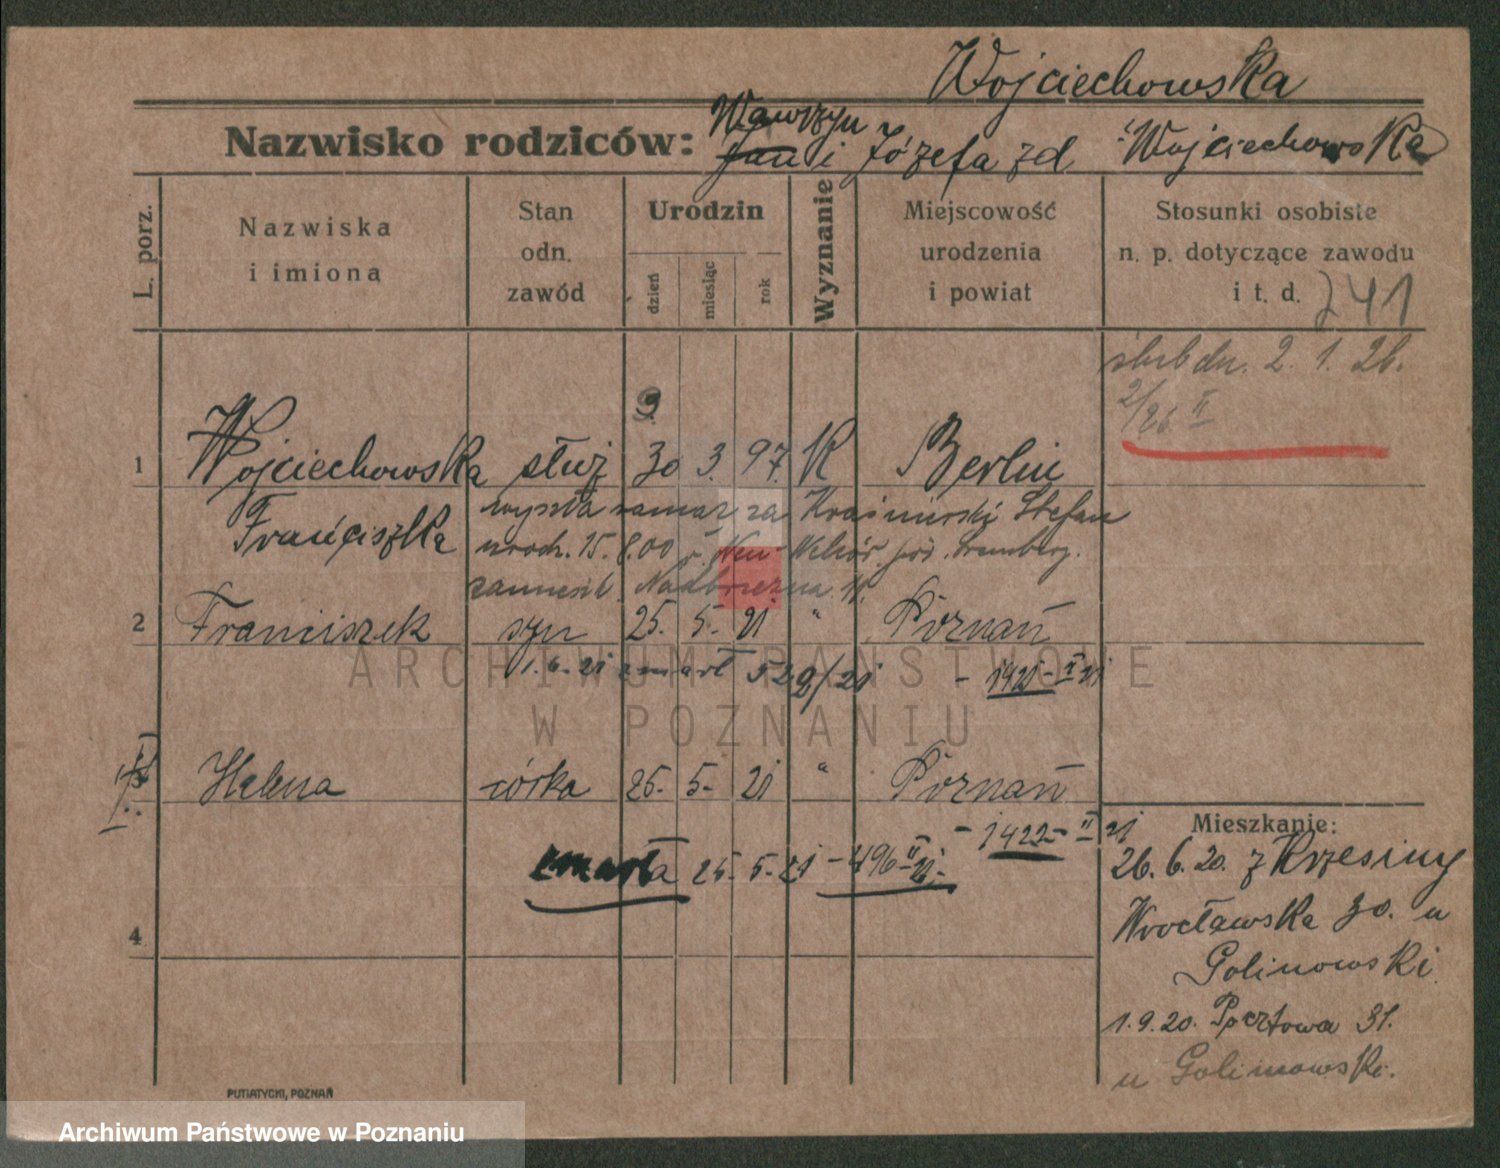 Wojciechowska
Nazwisko rodziców: Wawrzyn
Jan i Józefa zd Wojciechowska
L. porz.
Nazwiska
i imiona
Stan
odn.
zawód
Urodzin
dzień
miesiąc
rok
Wyznanie
Miejscowość
urodzenia
i powiat
Stosunki osobiste
n. p. dotyczące zawodu
i t. d. 741
ślub dn. 2. 1. 26.
2/26 II
9
1 Wojciechowska służ 30 3. 97. K Berlin
Franciszka
wyszła zamąż za Kraśnierski Stefan
urodz. 15. 8.00 r. Neu-
zamieszk. Nadbrzeżna 11.
2 Franciszek syn 25. 5. 21 " Poznań
1.6.21 zmarł 529/21 - 1421-II 21
Helena córka 25. 5. 21 " Poznań
- 1422-II 21
zmarła 25. 5. 21 - 496 II 21.
4
Mieszkanie:
26. 6. 20. z Krzesiny
Wrocławska 30. u
Golinowski
1.9.20. Pocztowa 31.
u Golinowski.
PUTIATYCKI, POZNAŃ
ARCHIWUM PAŃSTWOWE
W POZNANIU
Archiwum Państwowe w Poznaniu